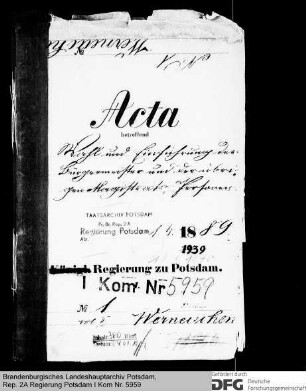 Werneuchen
Acta
betreffend
Wahl und Einführung der
Bürgermeister und der übri-
gen Magistrats Personen.
STAATSARCHIV POTSDAM
Pr. Br. Rep. 2A
Regierung Potsdam
Abt.
1889
1939
Regierung zu Potsdam.
I Kom Nr 5959
№ 1
Werneuchen
Brandenburgisches Landeshauptarchiv Potsdam,
Rep. 2A Regierung Potsdam I Kom Nr. 5959
Gefördert durch
DFG Deutsche
Forschungsgemeinschaft